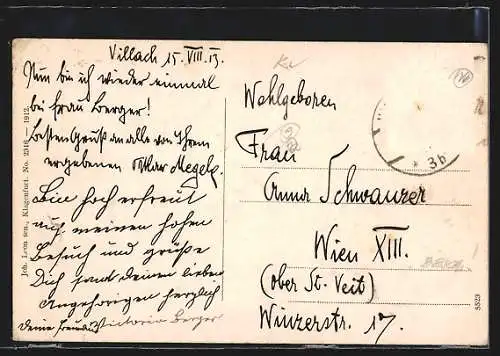 Villach 15. VIII. 13.
Nun bin ich wieder einmal
bei Frau Berger!
Besten Gruß an alle von Ihrem
ergebenen Otkar
Bin hoch erfreut
über meinen hohen
Besuch und grüße
Dich samt deinen lieben
Angehörigen herzlich
deine Victoria Berger
Joh. Leon sen., Klagenfurt. No. 2316 — 1912.
Wohlgeboren
Frau
Anna Schwanzer
Wien XIII.
(ober St. Veit)
Winzerstr. 17.
* 3b
5323